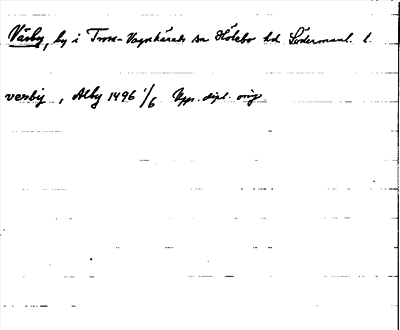 Väsby, by i Trosa-Vagnhärads sn Hölebo hd Södermanl. l.
vesby, Alby 1496 1/6 Upps. dipl. orig